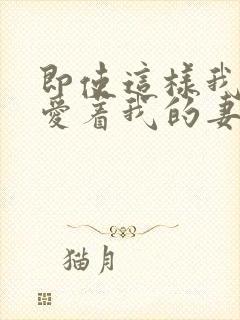 即使這樣我
愛着我的妻
猫月